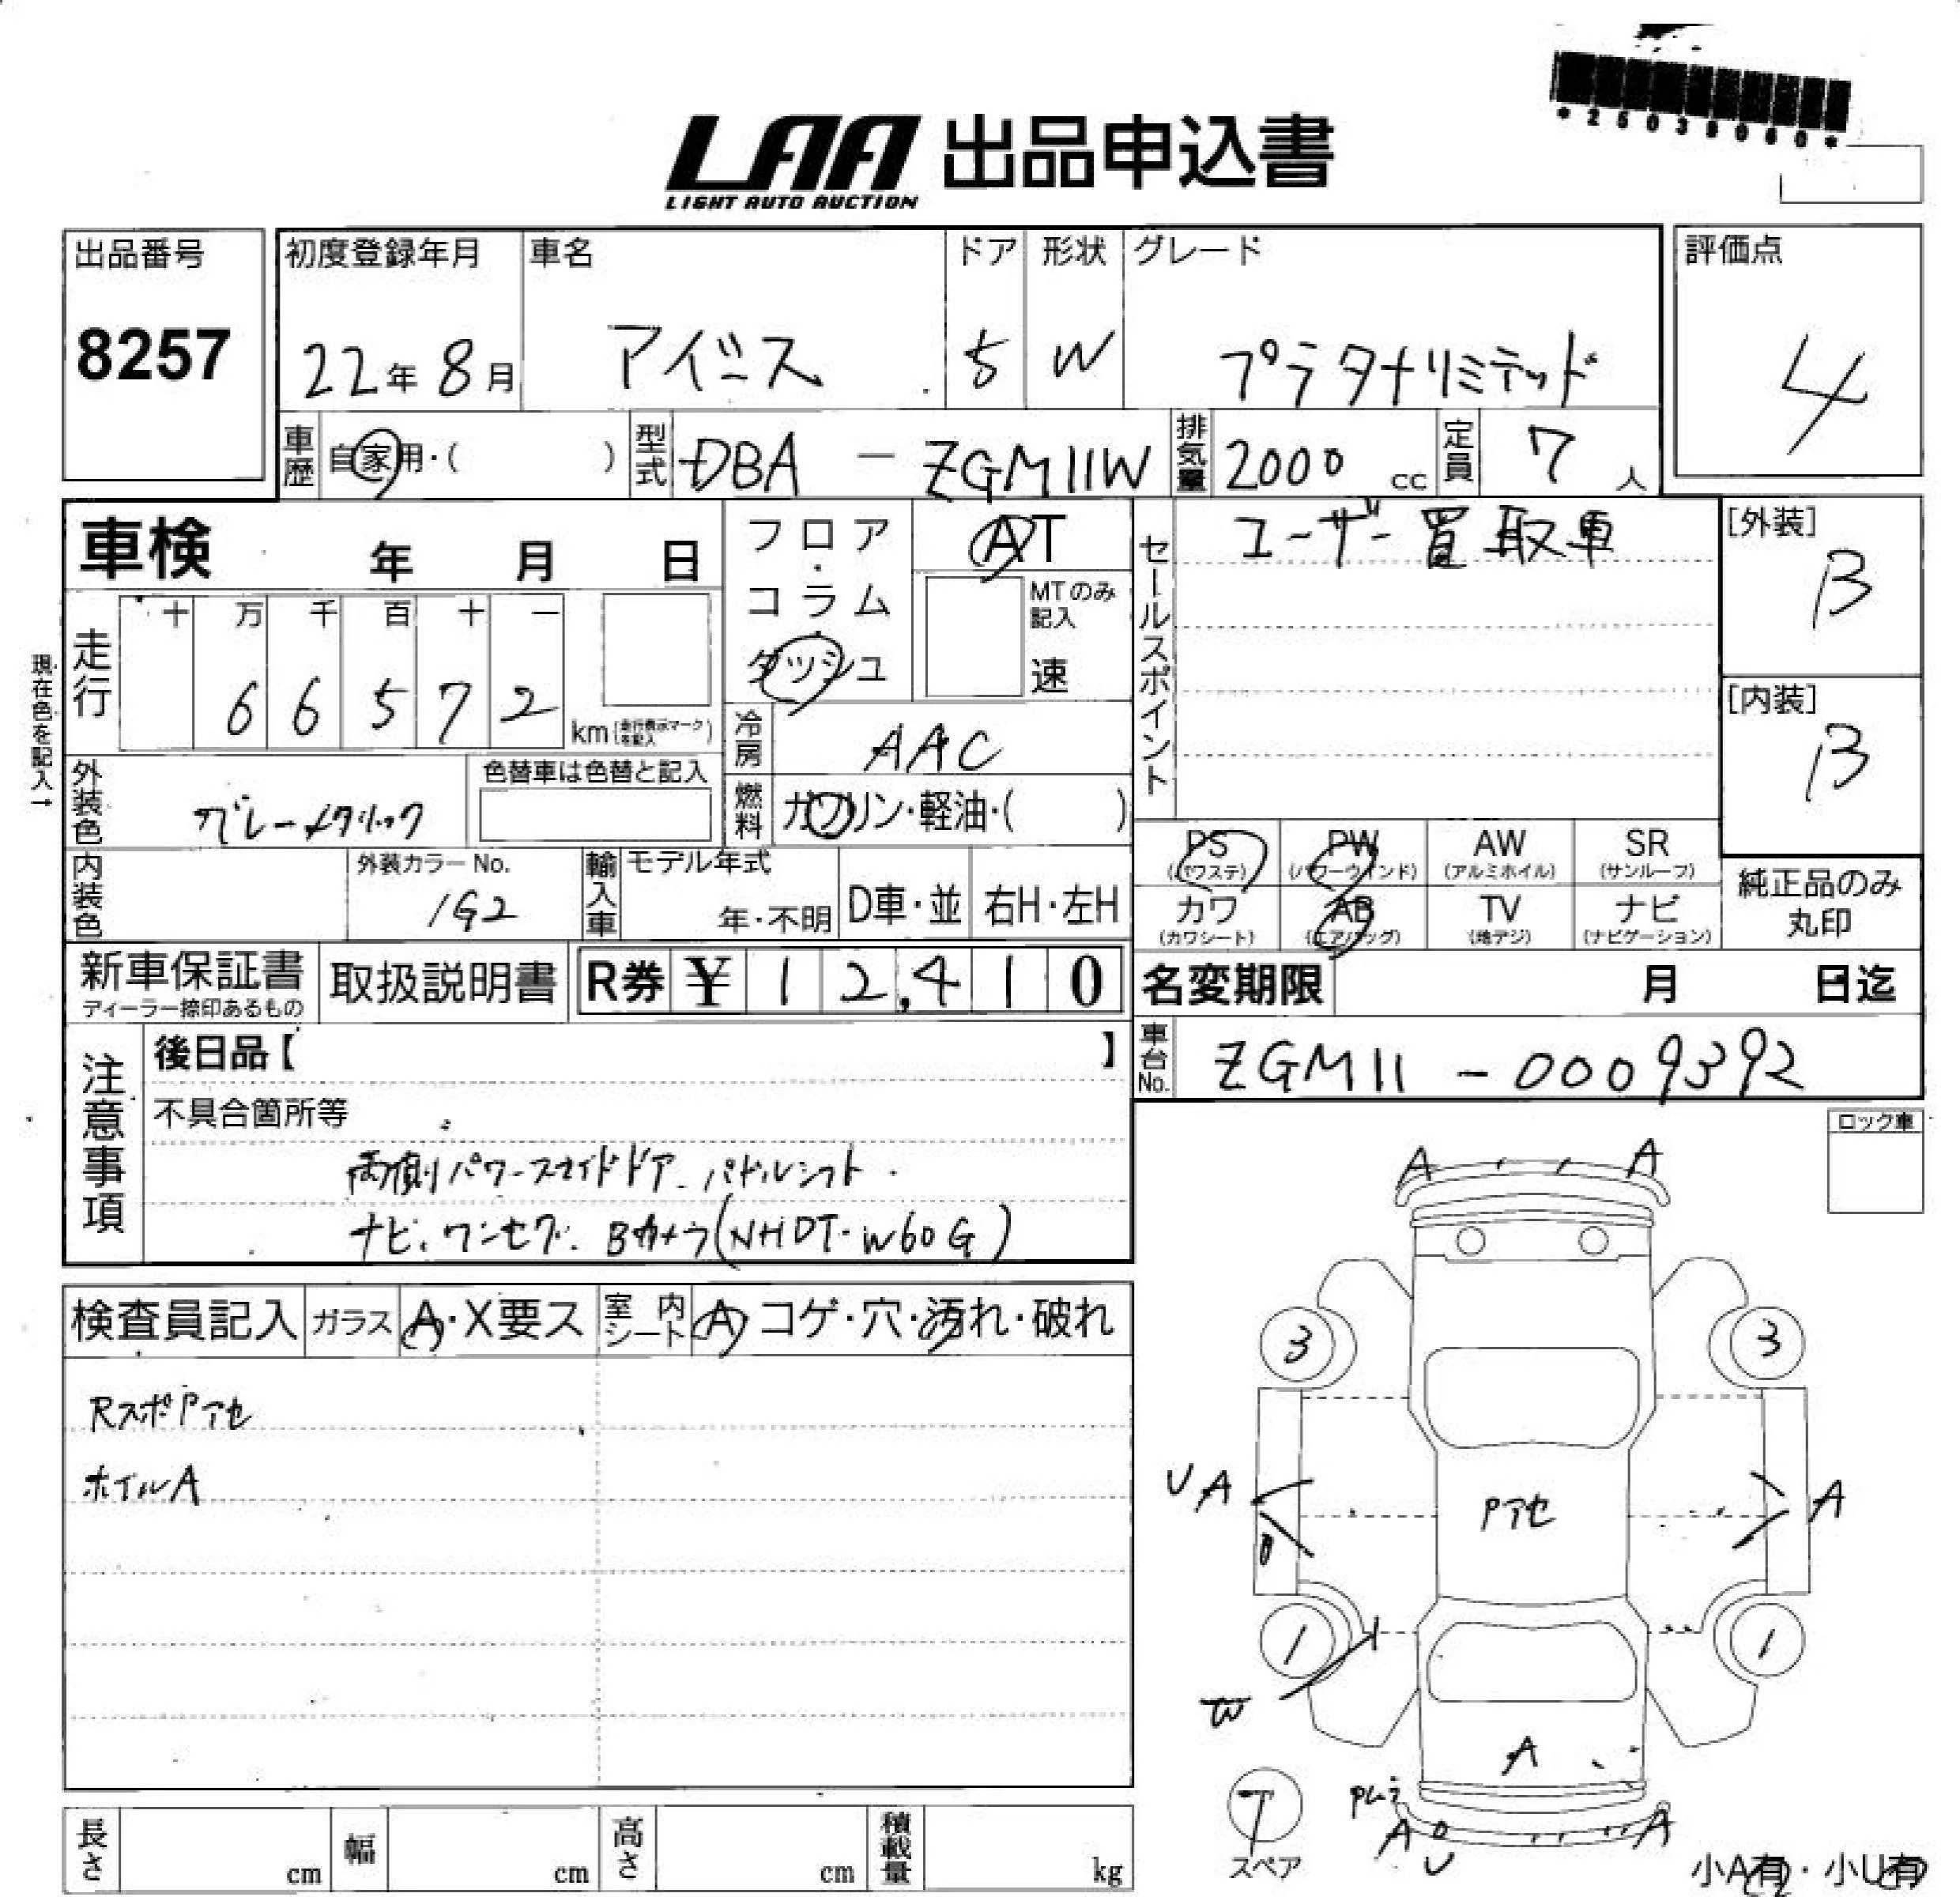 LAA 出品申込書
LIGHT AUTO AUCTION
出品番号
8257
初度登録年月
22年 8月
車名
アイシス
ドア
5
形状
W
グレード
プラタナリミテッド
評価点
4
車歴
自家用・( )
型式
DBA - ZGM11W
排気量
2000 cc
定員
7 人
車検 年 月 日
フロア・コラム・ダッシュ
AT
MTのみ記入
速
セールスポイント
ユーザー買取車
[外装]
B
[内装]
B
現在色を記入→
走行
十 万 千 百 十 一
6 6 5 7 2
km(走行表示マークを記入)
冷房
AAC
燃料
ガソリン・軽油・( )
外装色
グレーメタリック
色替車は色替と記入
内装色
外装カラーNo.
1G2
輸入車
モデル年式
年・不明
D車・並
右H・左H
PS
(パワステ)
PW
(パワーウインド)
AW
(アルミホイル)
SR
(サンルーフ)
カワ
(カワシート)
AB
(エアバッグ)
TV
(地デジ)
ナビ
(ナビゲーション)
純正品のみ
丸印
新車保証書
ディーラー捺印あるもの
取扱説明書
R券 ¥ 12,410
名変期限 月 日迄
車台No.
ZGM11 - 0009392
注意事項
後日品【 】
不具合箇所等
両側パワースライドドア パドルシフト
ナビ.ワンセグ. Bカメラ(NHDT-W60G)
ロック車
検査員記入
ガラス
A・X要ス
室内シート
A コゲ・穴・汚れ・破れ
RスポPアセ
ホイルA
A A
3 3
UA
A
Pアセ
1 1
W
A
Pムラ
A U
A
T
スペア
小A有・小U有
長さ cm
幅 cm
高さ cm
積載量 kg